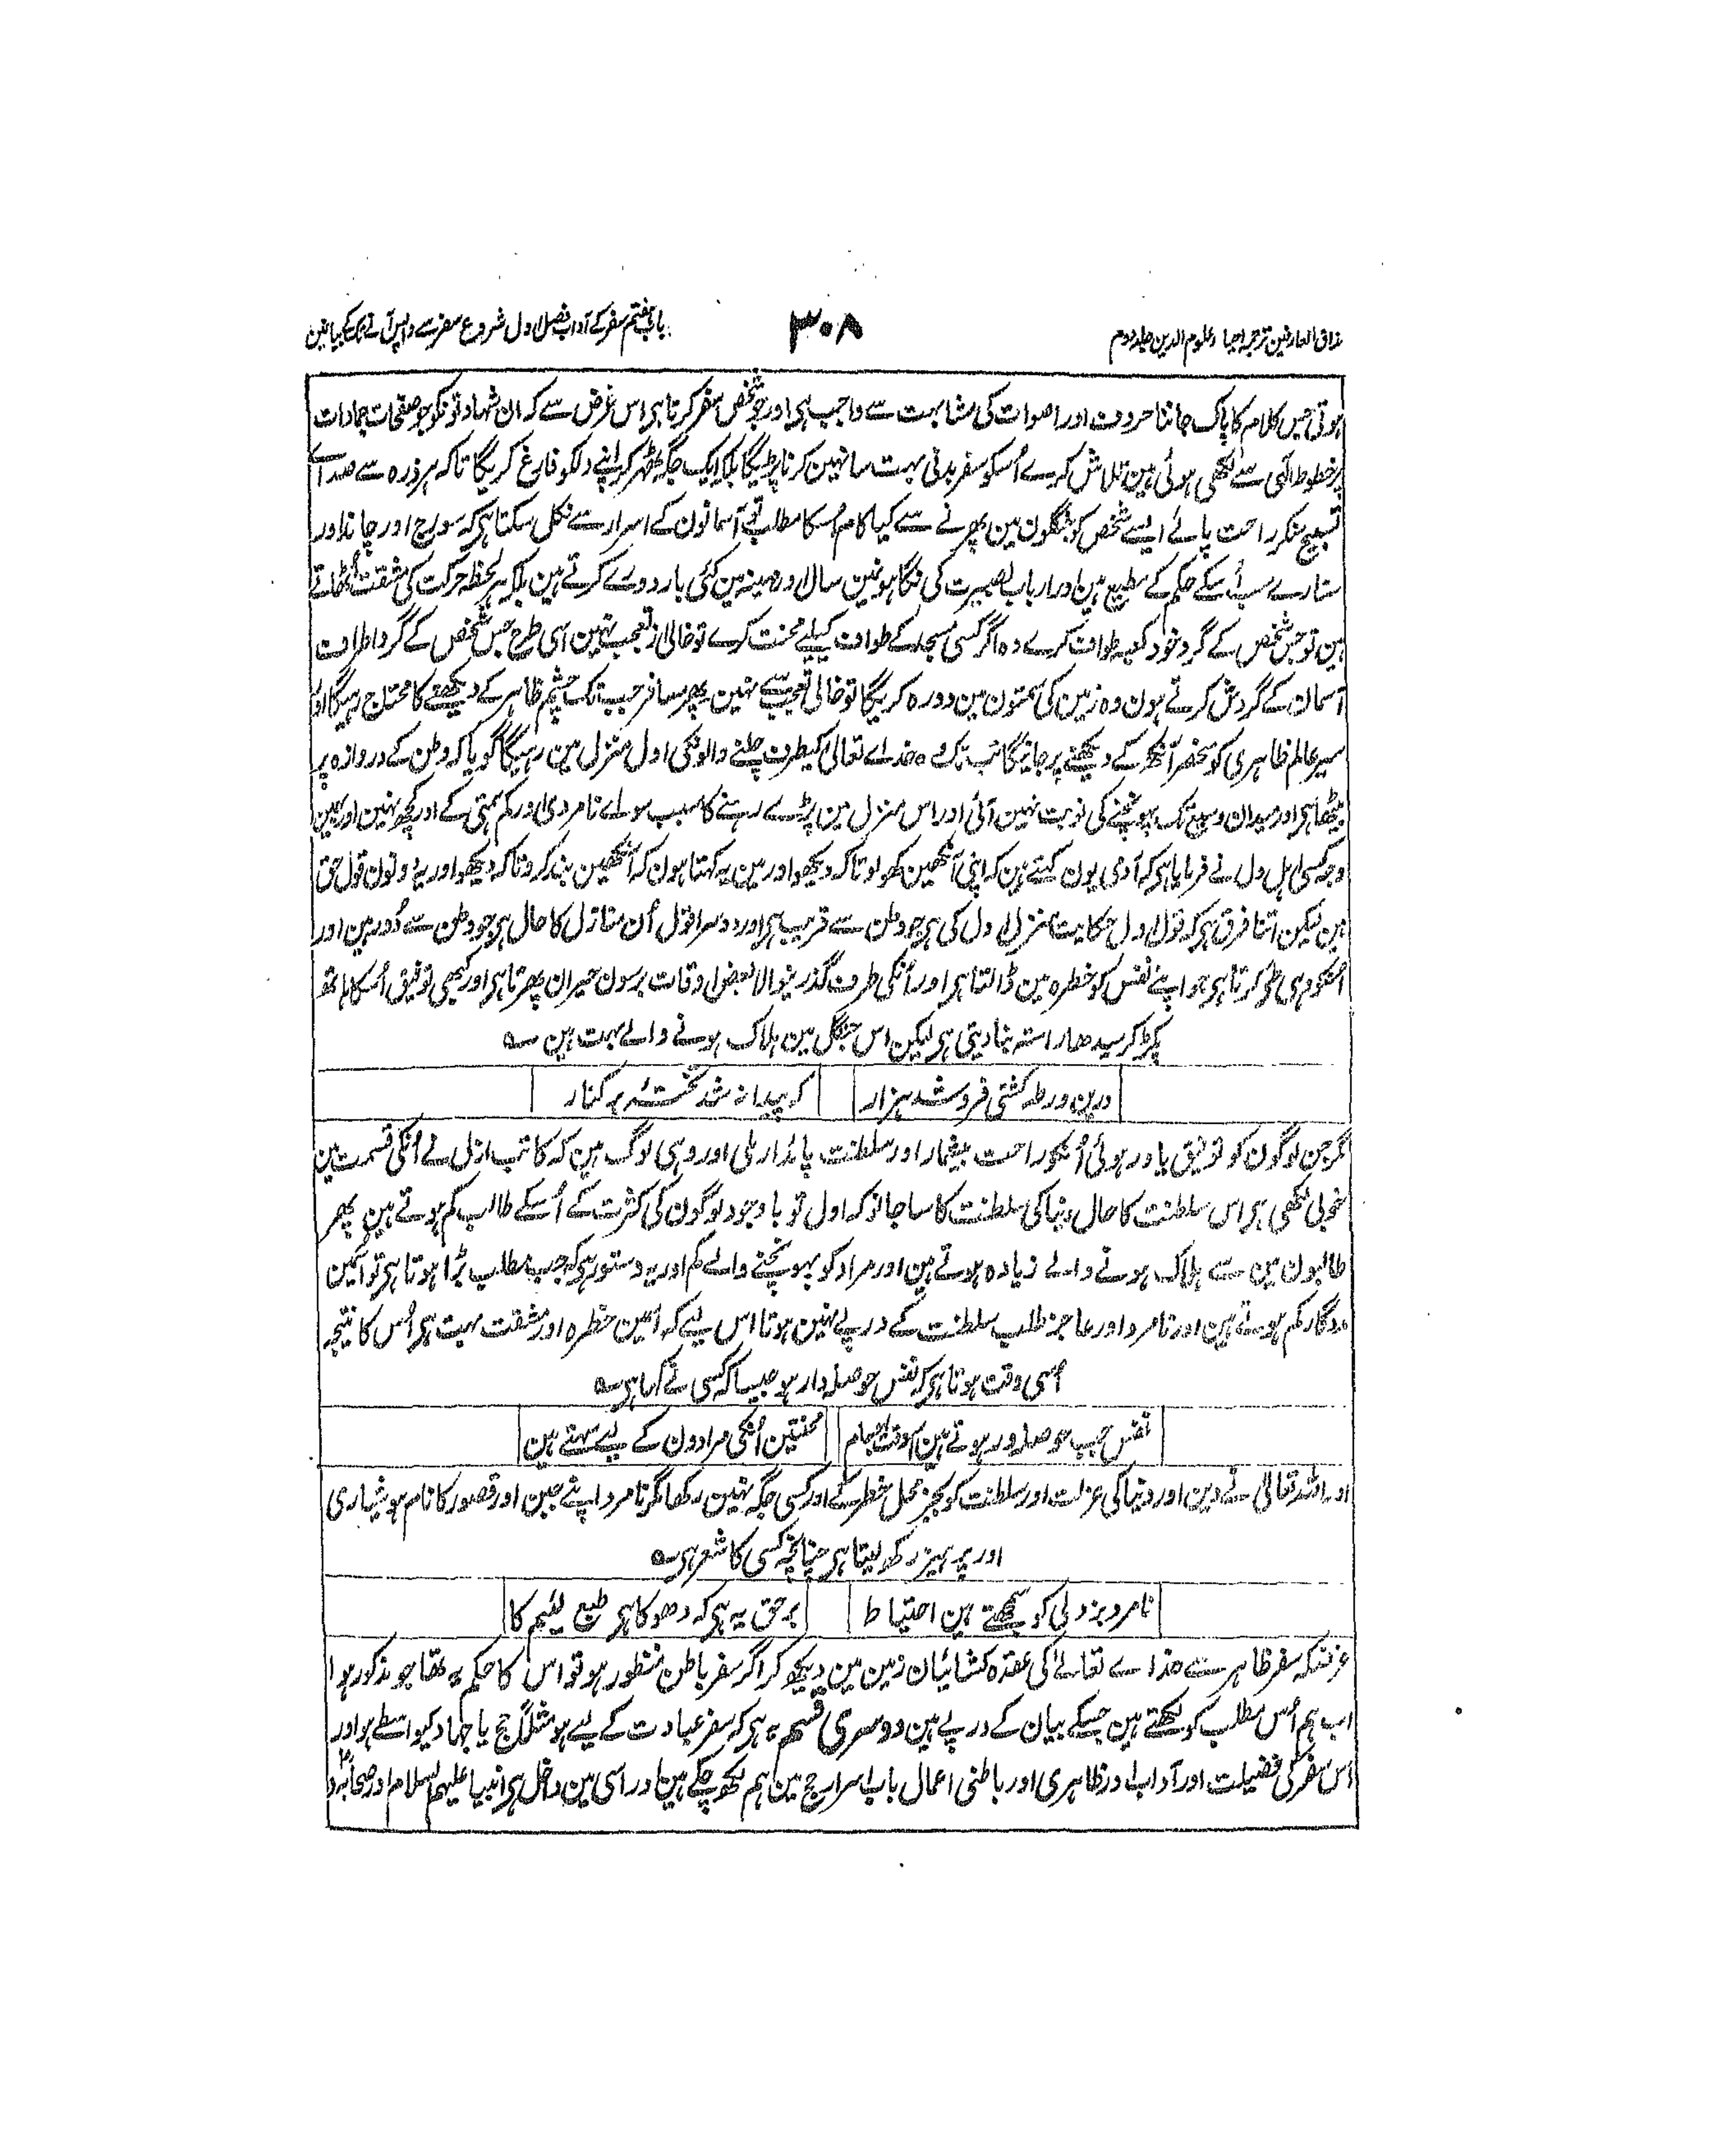 مذاق العارفین ترجمہ احیاء علوم الدین جلد دوم
۳۰۸
باب ہفتم سفر کے آداب فصل اول شروع سفر سے واپس آنے تک کے بیان میں
ہوتی جس کلام کا پاک جاننا حروف اور اصوات کی مشابہت سے واجب ہی اور جو شخص سفر کرتا ہی اس غرض سے کہ ان شہادتونکو جو صفحات جمادات
پر خطوط الٰہی سے لکھی ہوئی ہین تلاش کرے اُسکو سفر بدنی بہت سا نہین کرنا پڑیگا بلکہ ایک جگہ ٹھہر کر اپنے دلکو فارغ کریگا تاکہ ہر ذرہ سے صداے
تسبیح سنکر راحت پائے ایسے شخص کو جنگلون مین پھرنے سے کیا کام اُسکا مطلب تو آسمانون کے اسرار سے نکل سکتا ہی کہ سورج اور چاند اور
ستارے سب اُسکے حکم کے مطیع ہین اور ارباب بصیرت کی نگاہونمین سال اور مہینہ مین کئی بار دورے کرتے ہین بلکہ ہر لحظہ حرکت کی مشقت اُٹھاتے
ہین تو جس شخص کے گرد خود کعبہ طواف کرے وہ اگر کسی مسجد کے طواف کیلیے محنت کرے تو خالی از تعجب نہین اسی طرح جس شخص کے گرد اطراف
آسمان کے گردش کرتے ہون وہ زمین کی سمتون مین دورہ کریگا تو خالی تعجب سے نہین پھر مسافر جب تک چشم ظاہر کے دیکھنے کا محتاج رہیگا اور
سیر عالم ظاہری کو منحصر آنکھ کے دیکھنے پر جانیگا تب تک وہ خداے تعالیٰ کیطرف چلنے والونکی اول منزل مین رہیگا گویا کہ وطن کے دروازہ پر
بیٹھا ہی اور میدان وسیع تک پہونچنے کی نوبت نہین آئی اور اس منزل مین پڑے رہنے کا سبب سواے نامردی اور کم ہمتی کے اور کچھ نہین اور یہین
وجہ کسی اہل دل نے فرمایا ہی کہ آدمی یون کہتے ہین کہ اپنی آنکھین کھولو تاکہ دیکھو اور مین یہ کہتا ہون کہ آنکھین بند کرو تاکہ دیکھو اور یہ دونون قول حق
ہین لیکن اتنا فرق ہی کہ قول اول حکایت منزل اول کی ہی جو وطن سے قریب ہی اور دوسرا قول اُن منازل کا حال ہی جو وطن سے دُور ہین اور
اُنکو وہی طی کرتا ہی جو اپنے نفس کو خطرہ مین ڈالتا ہی اور اُنکی طرف گذرنیوالا بعض اوقات برسون حیران پھرتا ہی اور کبھی توفیق اُسکا ہاتھ
پکڑ کر سیدھا راستہ بتا دیتی ہی لیکن اس جنگل مین ہلاک ہونے والے بہت ہین ؎
درین ورطہ کشتی فروشد ہزار
کہ پیدا نشد تختۂ بر کنار
مگر جن لوگون کو توفیق یاور ہوئی اُنکو راحت بیشمار اور سلطنت پائدار ملی اور وہی لوگ ہین کہ کاتب ازل نے اُنکی قسمت مین
خوبی لکھی ہی اس سلطنت کا حال دنیا کی سلطنت کا سا جانو کہ اول تو باوجود لوگون کی کثرت کے اُسکے طالب کم ہوتے ہین پھر
طالبون مین سے ہلاک ہونے والے زیادہ ہوتے ہین اور مراد کو پہونچنے والے کم اور یہ دستور ہی کہ جب مطلب بڑا ہوتا ہی تو اُسمین
مددگار کم ہوتے ہین اور نامرد اور عاجز طلب سلطنت کے درپے نہین ہوتا اس لیے کہ اُسمین خطرہ اور مشقت بہت ہی اُس کا نتیجہ
اُسی وقت ہوتا ہی کہ نفس حوصلہ دار ہو جیسا کہ کسی نے کہا ہی ؎
نفس جب حوصلہ ور ہوتے ہین اُسوقت اجسام
محنتین اُنکی مرادون کے لیے سہتے ہین
اور اللہ تعالیٰ نے دین اور دنیا کی عزت اور سلطنت کو بجز محل خطر کے اور کسی جگہ نہین رکھا مگر نامرد اپنے جبن اور قصور کا نام ہوشیاری
اور پرہیز رکھ لیتا ہی چنانچہ کسی کا شعر ہی ؎
نامرد بزدلی کو سمجھتے ہین احتیاط
بر حق یہ ہی کہ دھوکا ہی طبع لئیم کا
غرضکہ سفر ظاہر سے خداے تعالےٰ کی عقدہ کشائیان زمین مین دیکھ کر اگر سفر باطن منظور ہو تو اس کا حکم یہ تھا جو مذکور ہوا
اب ہم اُس مطلب کو لکھتے ہین جسکے بیان کے درپے ہین دوسری قسم یہ ہی کہ سفر عبادت کے لیے ہو مثلاً حج یا جہاد کیواسطے ہو اور
اس سفر کی فضیلت اور آداب اور ظاہری اور باطنی اعمال باب اسرار حج مین ہم لکھ چکے ہین اور اسی مین داخل ہی انبیا علیہم السلام اور صحابہ و